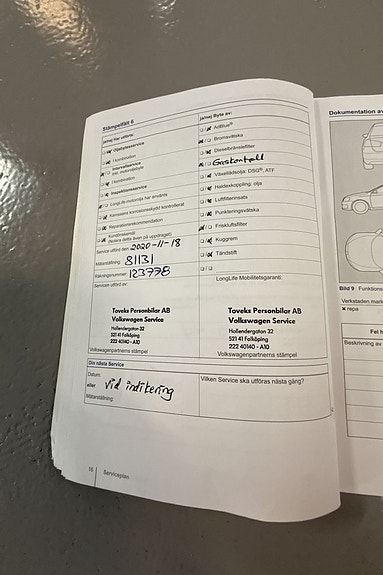 Stämpelfält 6
ja/nej Har utförts:
Oljebytesservice
I kombination
Intervallservice
inkl. motoroljebyte
I kombination
Inspektionsservice
LongLife-motorolja har använts
Karossens korrosionsskydd kontrollerat
Reparationsrekommendation
Kundönskemål
(notera detta även på uppdraget)
Service utförd den: 2020-11-18
Mätarställning: 81131
Räkningsnummer: 123778
Servicen utförd av:
Toveks Personbilar AB
Volkswagen Service
Hallendergatan 32
521 41 Falköping
222 40140 - A10
Volkswagenpartnerns stämpel
ja/nej Byte av:
AdBlue®
Bromsvätska
Dieselbränslefilter
Gaskontroll
Växellådsolja: DSG®, ATF
Haldexkoppling: olja
Luftfilterinsats
Punkteringsvätska
Friskluftsfilter
Kuggrem
Tändstift
LongLife Mobilitetsgaranti:
Toveks Personbilar AB
Volkswagen Service
Hallendergatan 32
521 41 Falköping
222 40140 - A10
Volkswagenpartnerns stämpel
Din nästa Service
Datum:
eller vid indikering
Mätarställning:
Vilken Service ska utföras nästa gång?
16 Serviceplan
Dokumentation av
Bild 9 Funktions
Verkstaden mark
repa
Fel h
Beskrivning av